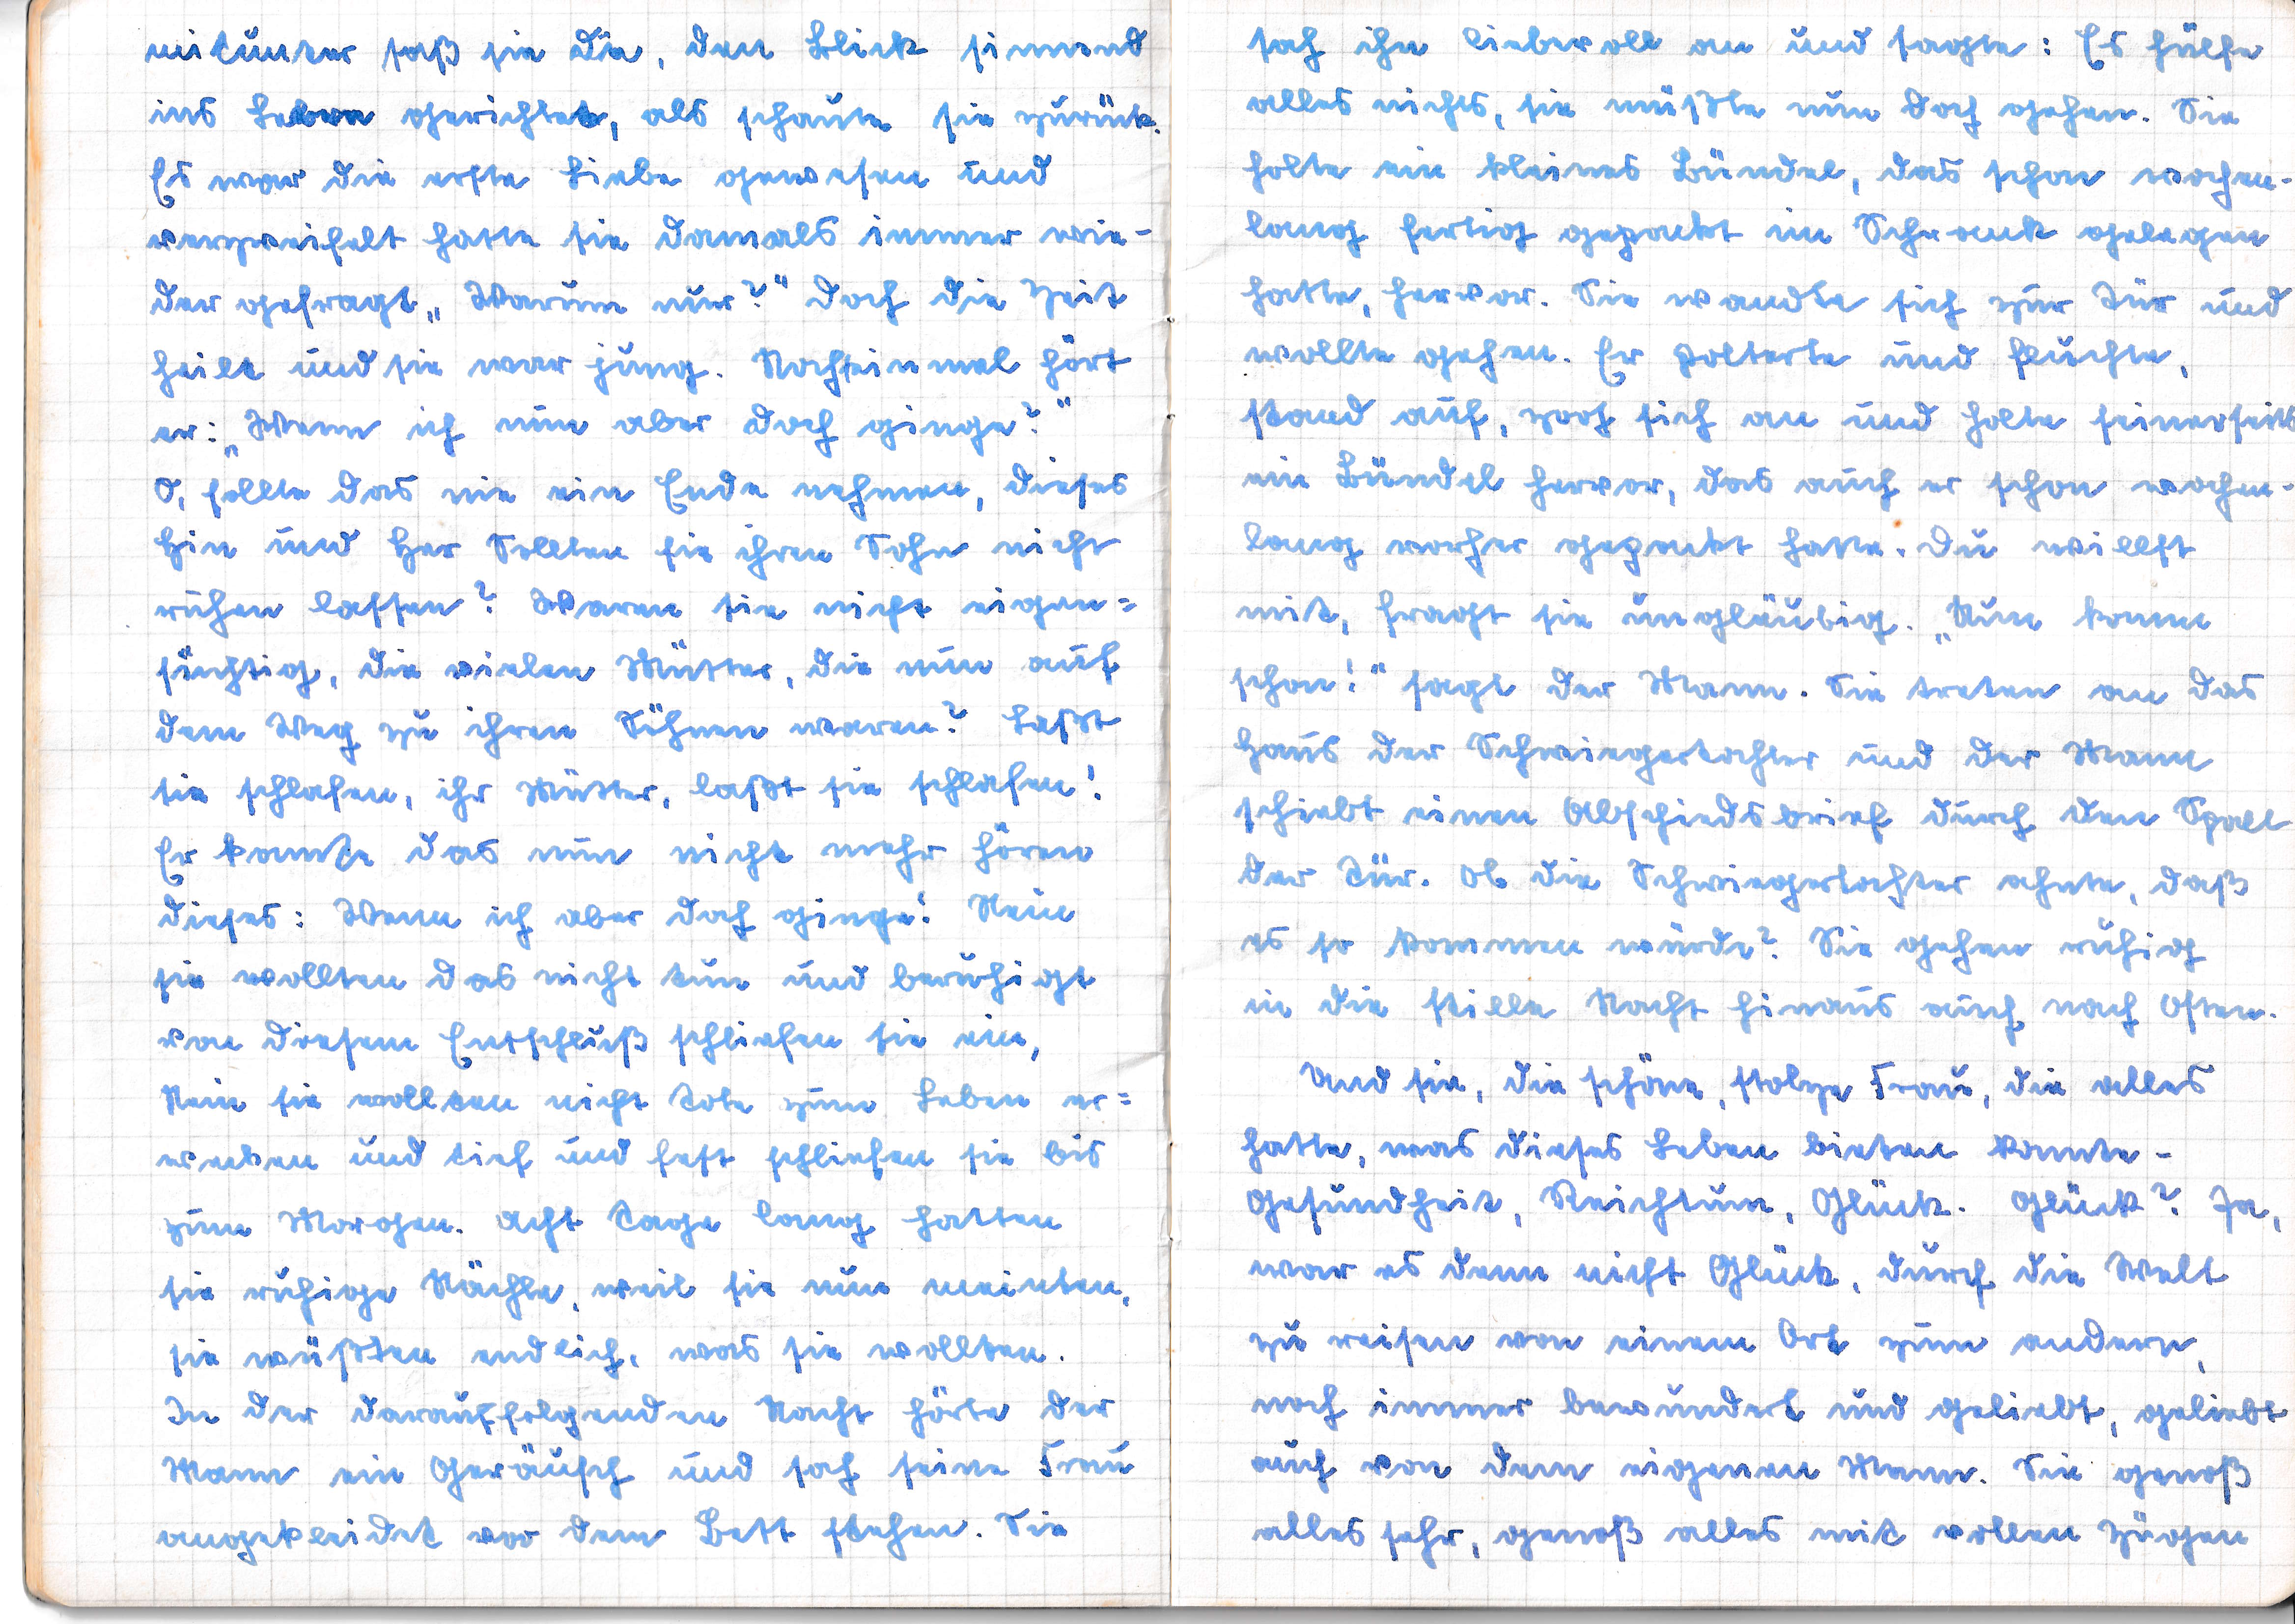 mitunter saß sie da, den Blick sinnend
ins Leben gerichtet, als schaute sie zurück.
Es war die erste Liebe gewesen und
verzweifelt hatte sie damals immer wie-
der gefragt „Warum nur?" Doch die Zeit
heilt und sie war jung. Noch einmal hört
er: „Wenn ich nun aber doch ginge?"
O, sollte das nie ein Ende nehmen, dieses
Hin und Her Sollten sie ihren Sohn nicht
ruhen lassen? Waren sie nicht eigen=
süchtig, die vielen Mütter, die nun auf
dem Weg zu ihren Söhnen waren? Laßt
sie schlafen, ihr Mütter, laßt sie schlafen!
Er konnte das nun nicht mehr hören
dieses: Wenn ich aber doch ginge! Nein
sie wollten das nicht tun und beruhigt
von diesem Entschluß schliefen sie ein,
Nein sie wollten nicht Tote zum Leben er=
wecken und tief und fest schliefen sie bis
zum Morgen. Acht Tage lang hatten
sie ruhige Nächte, weil sie nun meinten,
sie wüßten endlich, was sie wollten.
In der darauffolgenden Nacht hörte der
Mann ein Geräusch und sah seine Frau
angekleidet vor dem Bett stehen. Sie
sah ihn liebevoll an und sagte: Es hülfe
alles nichts, sie müßte nun doch gehen. Sie
holte ein kleines Bündel, das schon wochen-
lang fertig gepackt im Schrank gelegen
hatte, hervor. Sie wandte sich zur Tür und
wollte gehen. Er polterte und fluchte,
stand auf, zog sich an und holte seinerseits
ein Bündel hervor, das auch er schon wochen-
lang vorher gepackt hatte. Du willst
mit, fragt sie ungläubig. „Nun komm
schon!" sagt der Mann. Sie treten an das
Haus der Schwiegertochter und der Mann
schiebt einen Abschiedsbrief durch den Spalt
der Tür. Ob die Schwiegertochter ahnte, daß
es so kommen würde? Sie gehen ruhig
in die stille Nacht hinaus auch nach Osten.
Und sie, die schöne, stolze Frau, die alles
hatte, was dieses Leben bieten konnte -
Gesundheit, Reichtum, Glück. Glück? Ja,
war es denn nicht Glück, durch die Welt
zu reisen von einem Ort zum andern,
noch immer bewundert und geliebt, geliebt
auch von dem eigenen Mann. Sie genoß
alles sehr, genoß alles mit vollen Zügen